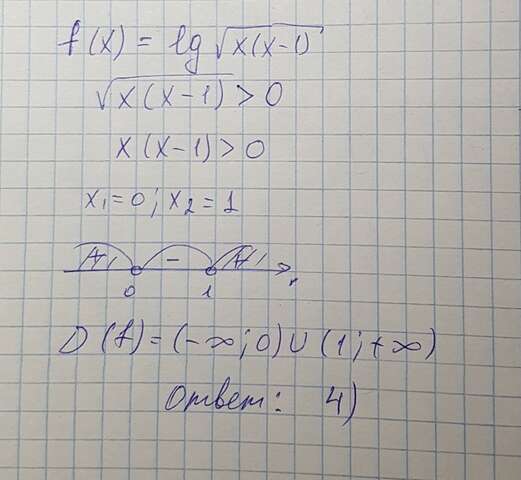 f(x) = lg √x(x-1)
√x(x-1) > 0
x(x-1) > 0
x₁=0; x₂=1
+ - +
0 1 x
D(f) = (-∞; 0) ∪ (1; +∞)
Ответ: 4)